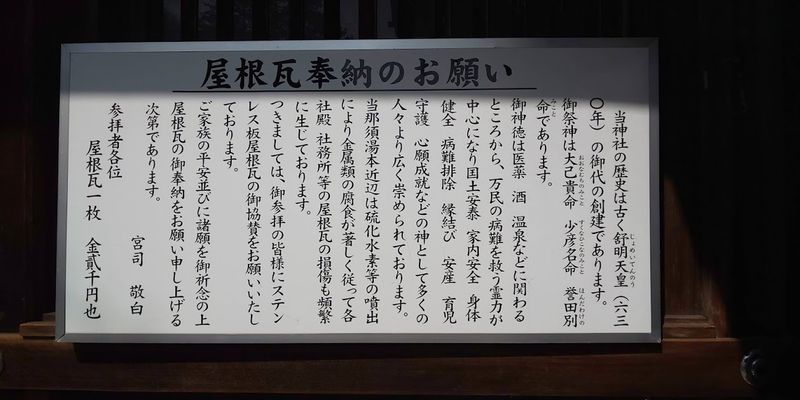 屋根瓦奉納のお願い
当神社の歴史は古く舒明天皇（六三
じょめいてんのう
〇年）の御代の創建であります。
御祭神は大己貴命 少彦名命 誉田別
おおなむちのみこと すくなひこなのみこと ほんだわけの
命であります。
みこと
御神徳は医薬 酒 温泉などに関わる
ところから、万民の病難を救う霊力が
中心になり国土安泰 家内安全 身体
健全 病難排除 縁結び 安産 育児
守護 心願成就などの神として多くの
人々より広く崇められております。
当那須湯本近辺は硫化水素等の噴出
により金属類の腐食が著しく従って各
社殿 社務所等の屋根瓦の損傷も頻繁
に生じております。
つきましては、御参拝の皆様にステン
レス板屋根瓦の御協賛をお願いいたし
ております。
ご家族の平安並びに諸願を御祈念の上
屋根瓦の御奉納をお願い申し上げる
次第であります。
宮司 敬白
参拝者各位
屋根瓦一枚 金貳千円也